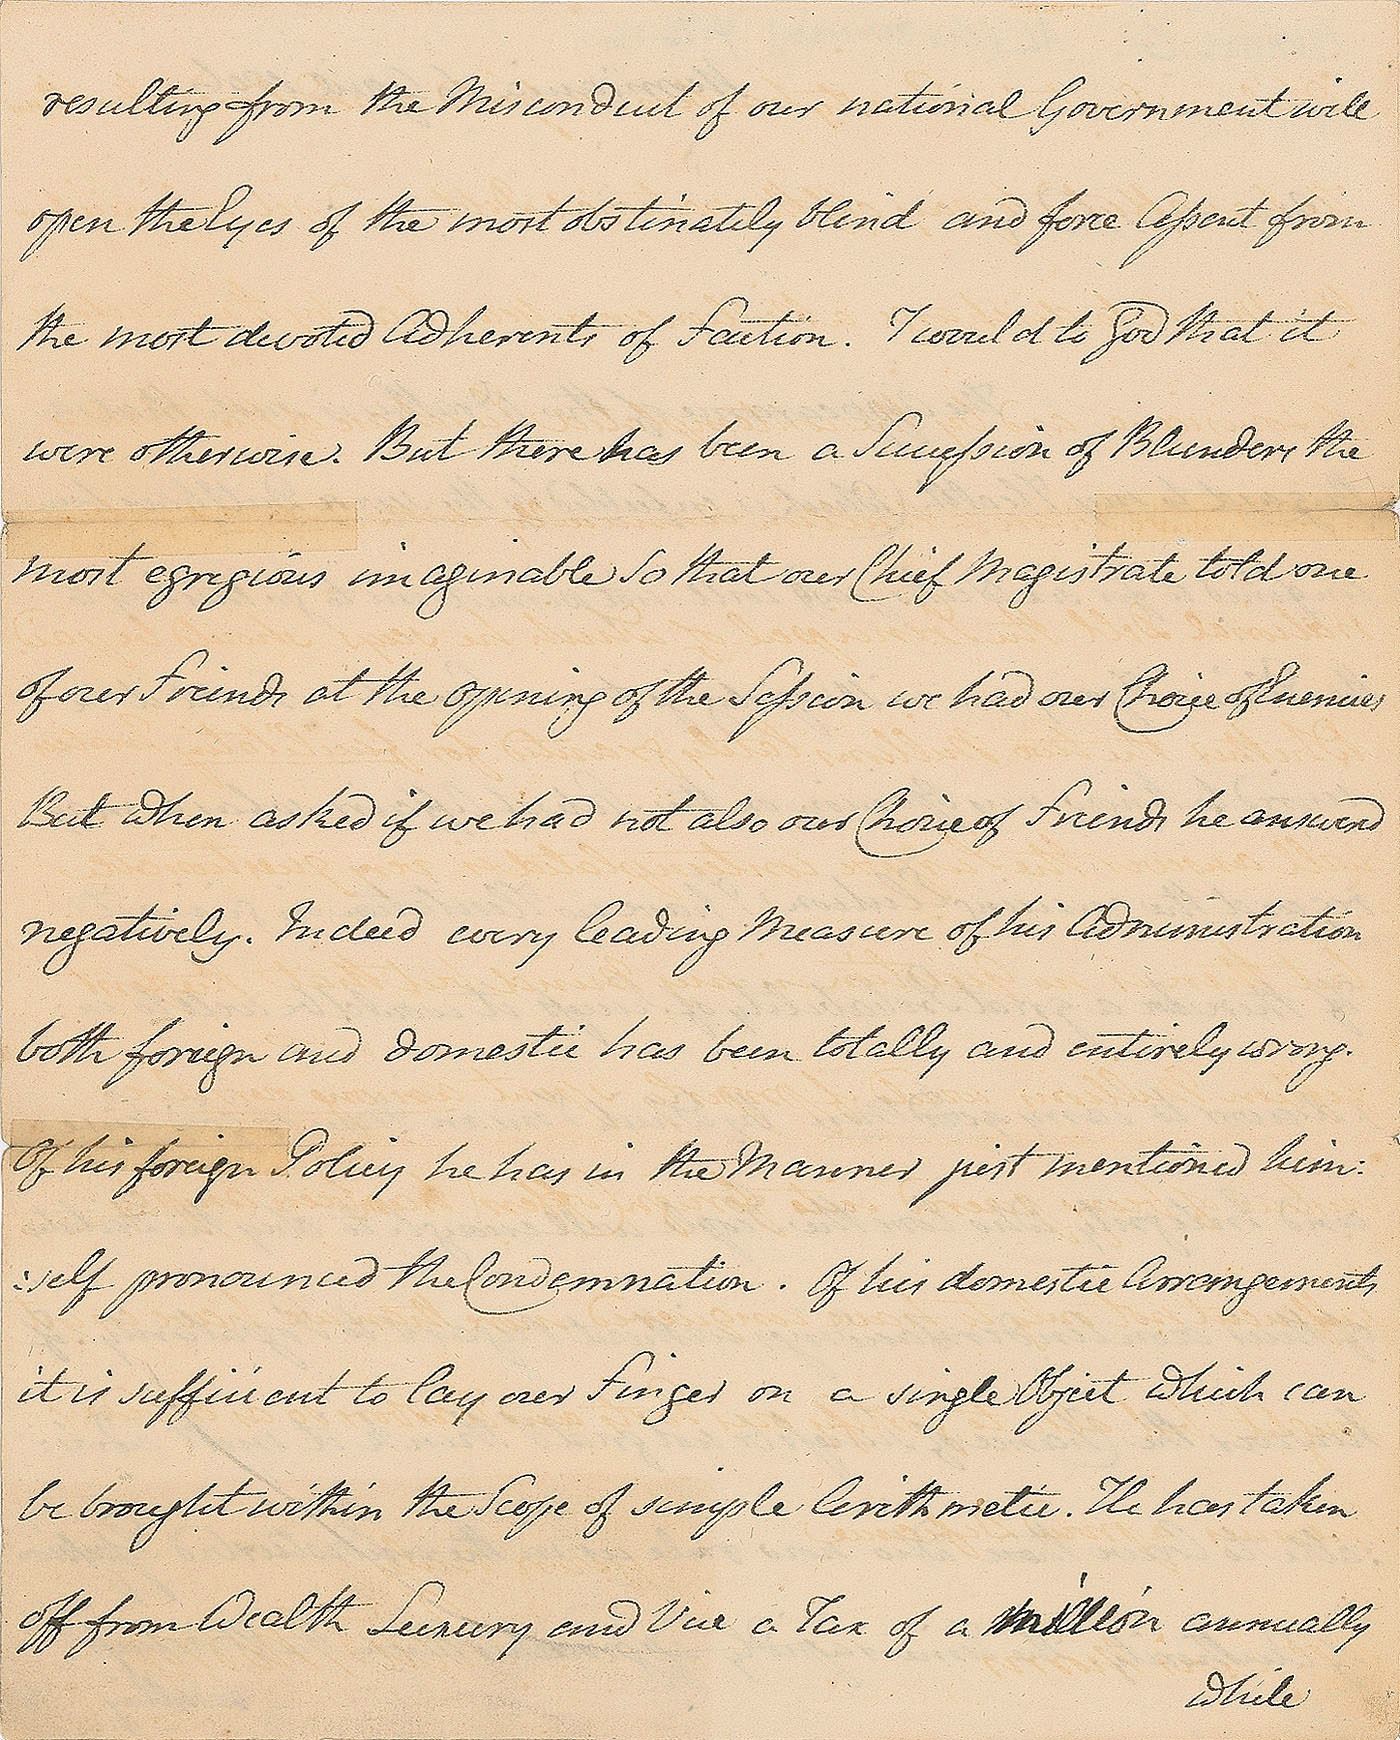 resulting from the Misconduct of our national Government will
open the Eyes of the most obstinately blind and force Assent from
the most devoted Adherents of Faction. I would to God that it
were otherwise. But there has been a Succession of Blunders the
most egregious imaginable So that our Chief Magistrate told one
of our Friends at the opening of the Session we had our Choice of Enemies
But when asked if we had not also our Choice of Friends he answerd
negatively. Indeed every leading Measure of his Administration
both foreign and domestic has been totally and entirely wrong.
Of his foreign Policy he has in the Manner just mentioned him:
:self pronounced the Condemnation. Of his domestic Arrangements
it is sufficient to lay our Finger on a single Object which can
be brought within the Scope of simple Arithmetic. He has taken
off from Wealth Luxury and Vice a Tax of a million annually
while